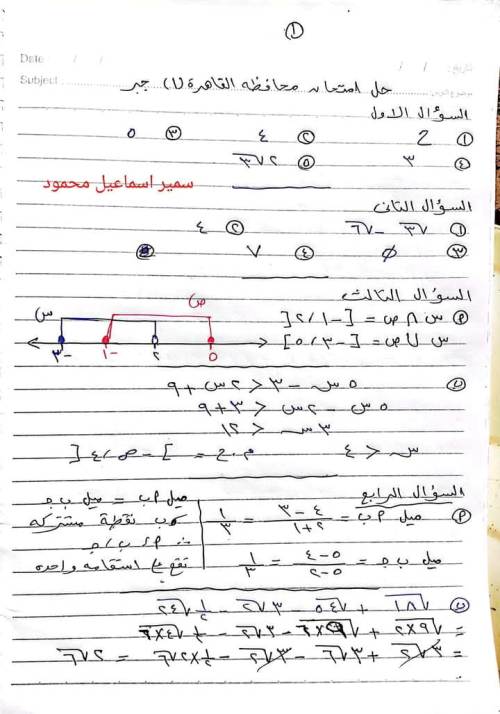 ①
Date / /
التاريخ: / /
Subject
الموضوع
حل امتحان محافظه القاهرة (١) جبر
السؤال الاول
① 2 ② ٤ ③ ٥
④ ٣ ⑤ ٢√٣
سمير اسماعيل محمود
السؤال الثانى
① √٣ - √٦ ② ٤
③ ∅ ④ ٧
السؤال الثالث
Ⓟ س ∩ ص = [-١ ، ٢]
س ∪ ص = [-٣ ، ٥]
س ص
-٣ -١ ٢ ٥
ⓑ ٥س - ٣ < ٢س + ٩
٥س - ٢س < ٩ + ٣
٣س < ١٢
س < ٤ م.ح = ]-∞ ، ٤[
السؤال الرابع
Ⓟ ميل م ب = (٤ - ٣) / (٢ + ١) = ١/٣
ميل ب ج = (٥ - ٤) / (٥ - ٢) = ١/٣
ميل م ب = ميل ب ج
، ب نقطة مشتركه
∴ م ، ب ، ج
تقع على استقامه واحده
ⓑ √١٨ + √٥٤ - ٣√٢ - ١/٢ √٢٤
= √(٩×٢) + √(٩×٦) - ٣√٢ - ١/٢ √(٤×٦)
= ٣√٢ + ٣√٦ - ٣√٢ - ١/٢ × ٢√٦ = ٢√٦